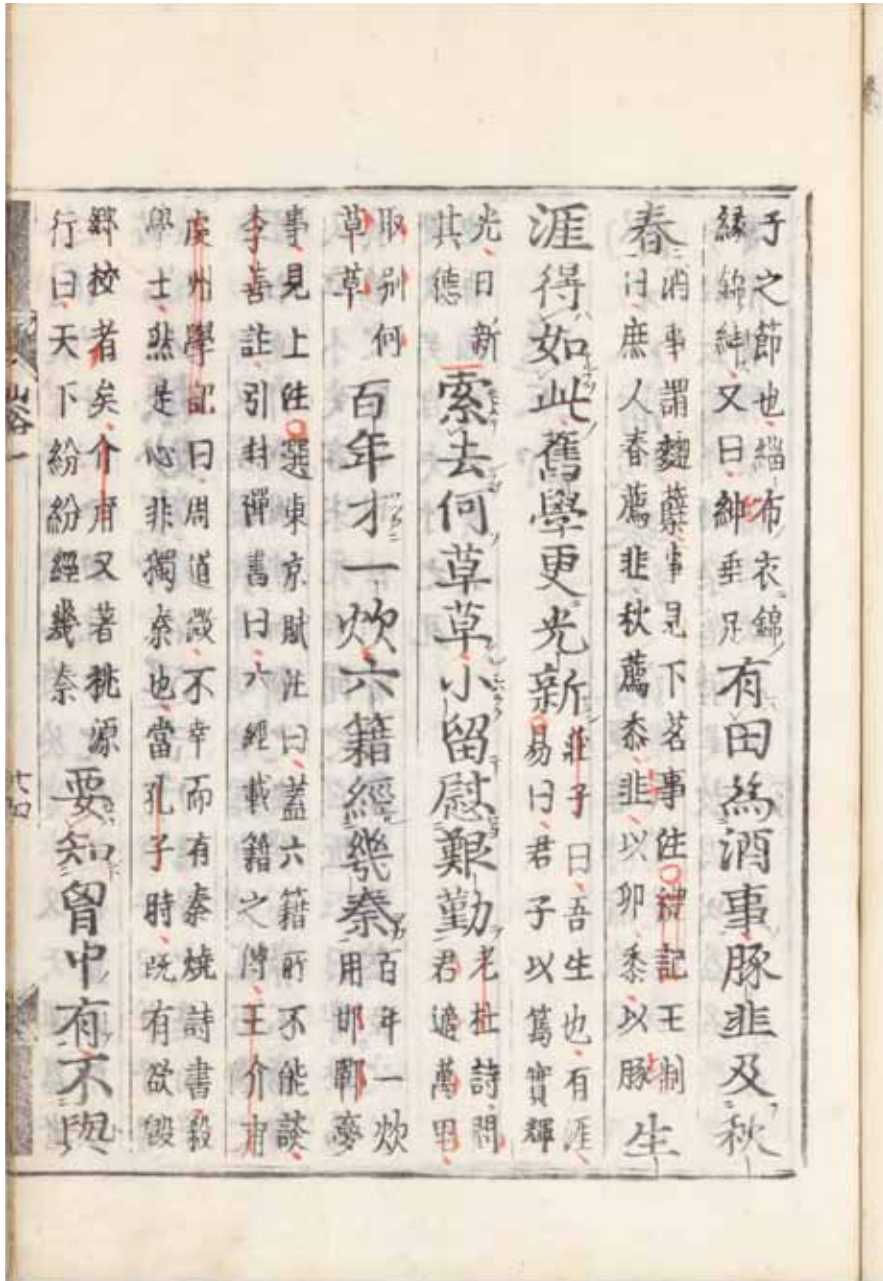 子之節也緇布衣錦
縁錦紳又曰紳垂足
有田為酒事豚韭及秋
春
酒事謂麴蘖事見下茗事注禮記王制
曰庶人春薦韭秋薦黍韭以卵黍以豚
生
涯得如此舊學更光新
莊子曰吾生也有涯
易曰君子以篤實輝
光日新
其德
索去何草草小留慰艱勤
老杜詩問
君適萬里
取別何
草草
百年才一炊六籍經幾秦
百年一炊
用邯鄲夢
事見上注選東京賦注曰蓋六籍所不能談
李善註引封禪書曰六經載籍之傳王介甫
虔州學記曰周道微不幸而有秦燒詩書殺
學士然是心非獨秦也當孔子時既有欲毀
鄉校者矣介甫又著桃源
行曰天下紛紛經幾秦
要知胷中有不與
山谷一